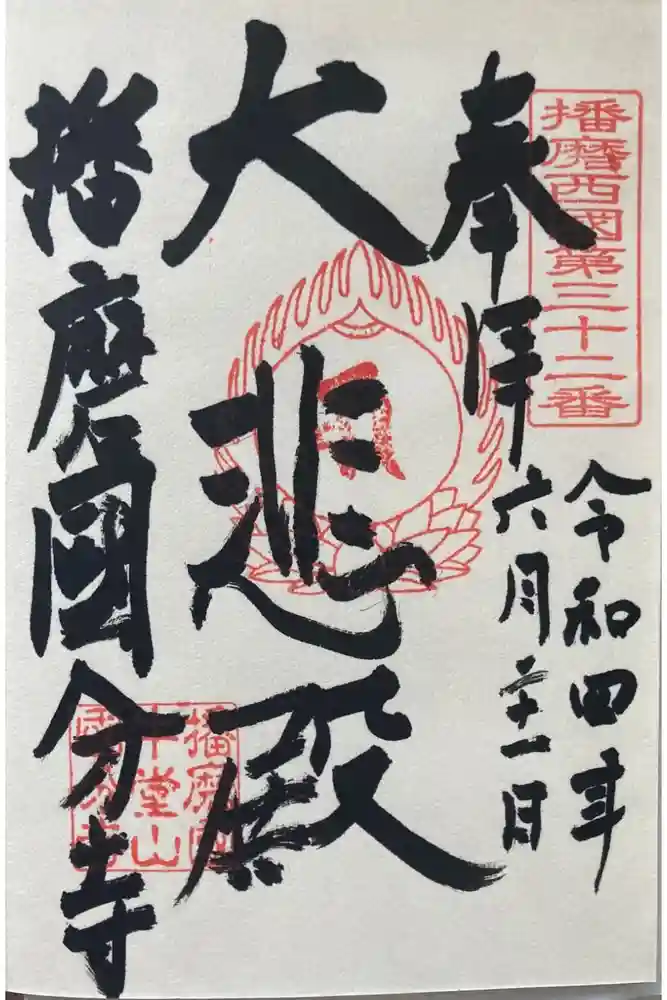 播磨西國第三十二番
令和四年
六月二十一日
奉拝
大悲殿
播磨國分寺
播磨國
牛堂山
國分寺